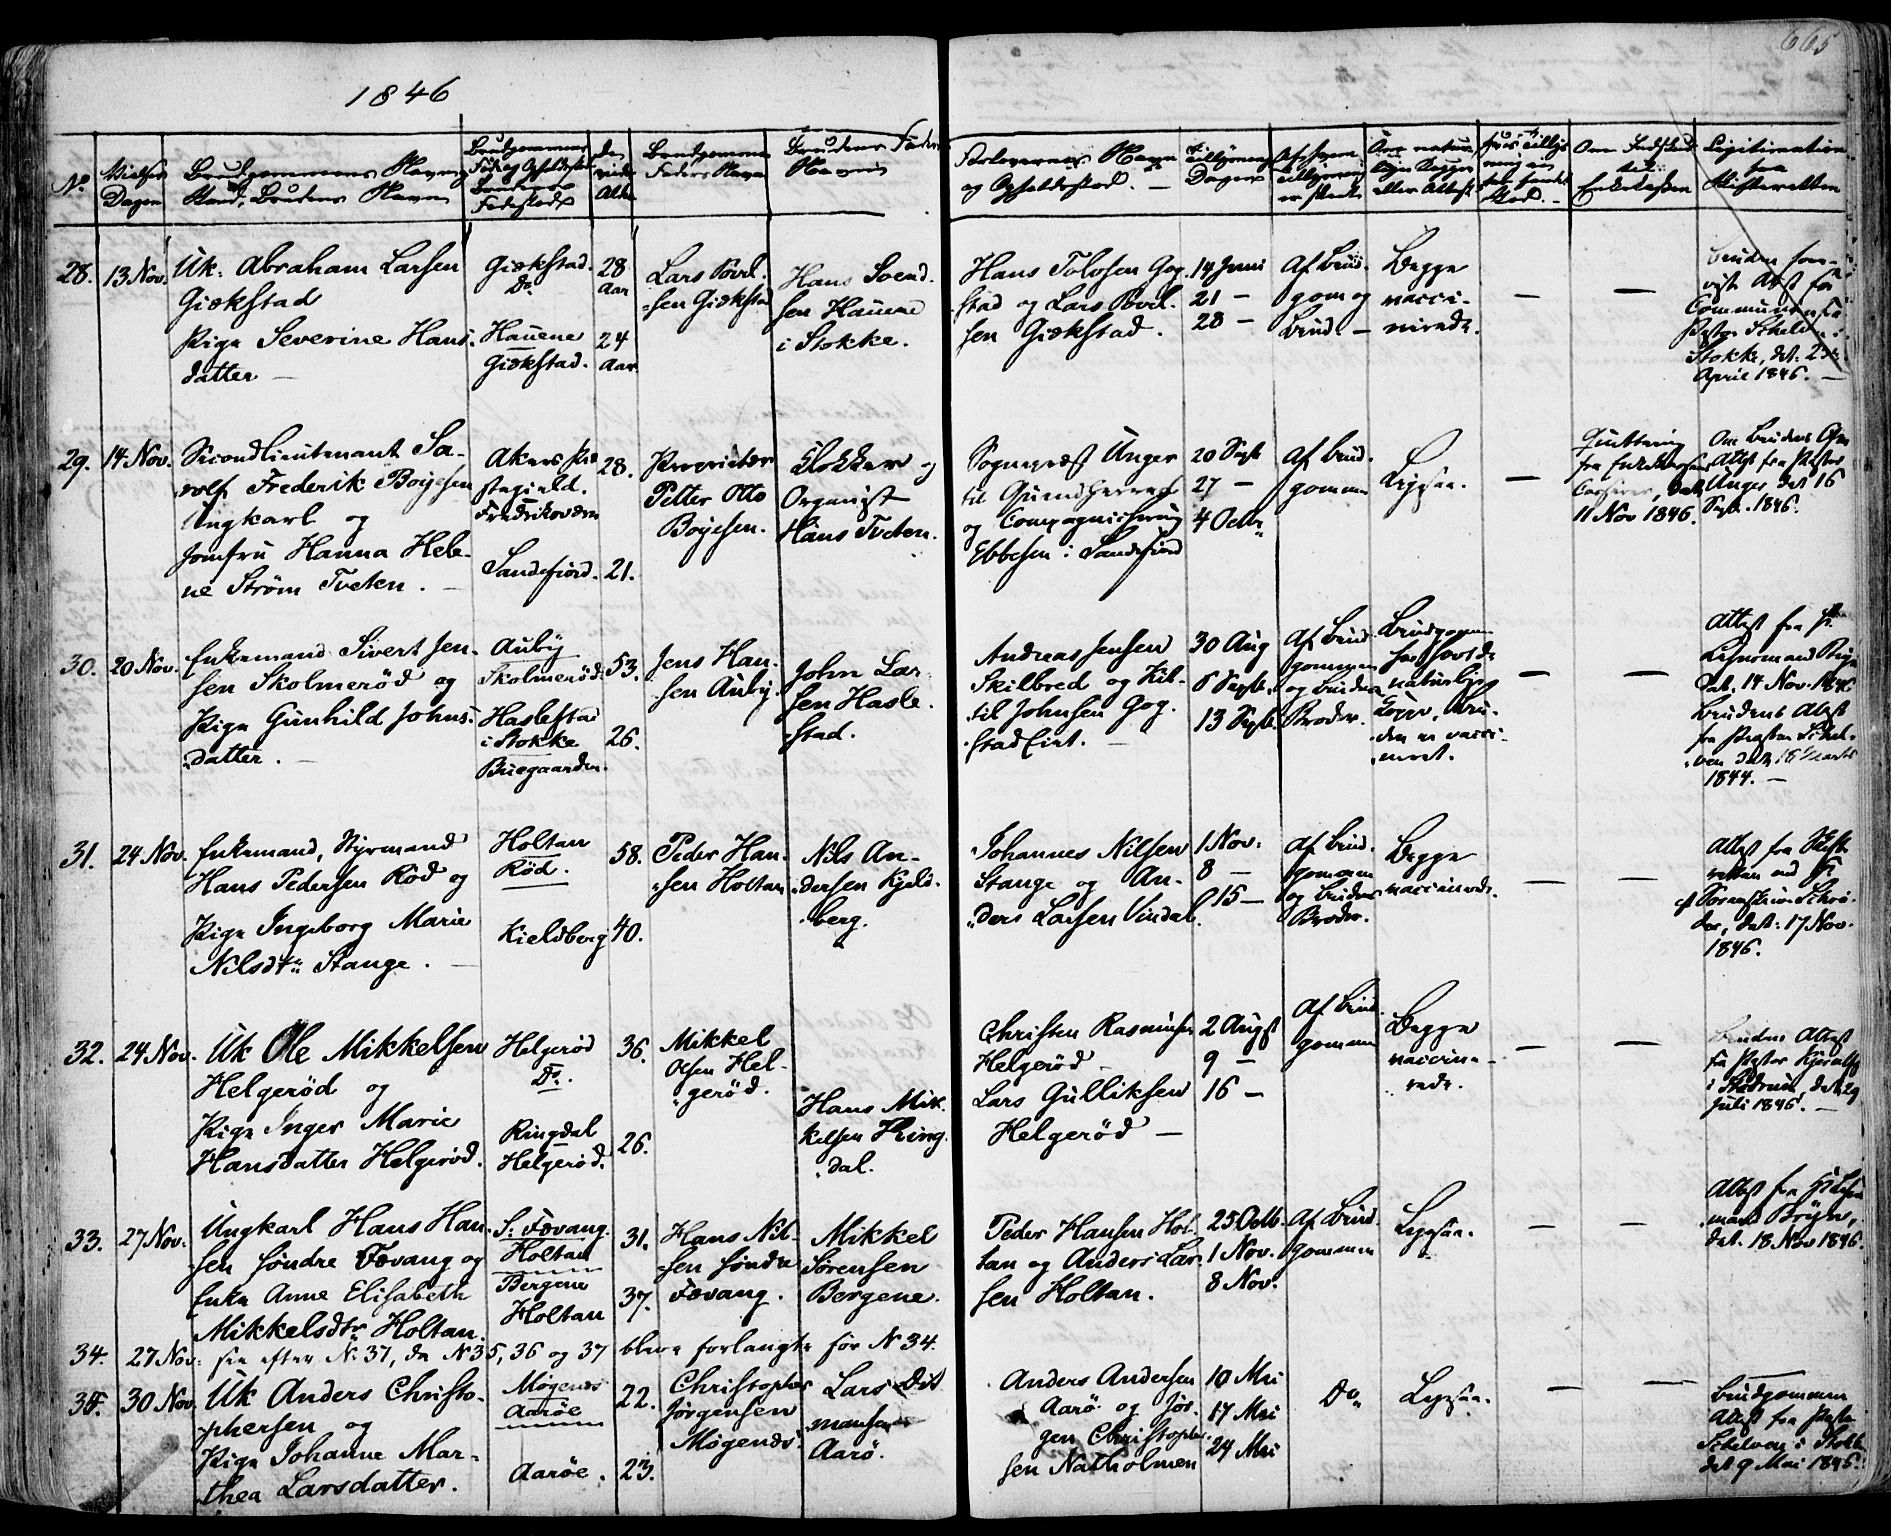 665
1846
No
Vielses Dagen
Brudgommens Navn og Stand, Brudens Navn
Brudgommens Føde og Opholdssted Brudens Fødested
Brudgommens Faders Navn
Brudens Faders Navn
Forlovernes Navn og Opholdssted. —
Tillysnings Dager
Om Indskud til Enkekassen
Legitimation fra Skifteretten
28.
13 Nov.
Uk: Abraham Larsen
Giækstad
Pige Severine Hans-
datter —
Giækstad.
Do.
Hauene
Giækstad.
28
Aar
24
Aar
Lars Povel-
sen Giækstad
Hans Svend-
sen Hauene
i Stokke.
Hans Tolvsen Gog-
stad og Lars Povel-
sen Giækstad.
14 Juni
21 —
28 —
Af Brud-
gom og
Brud. —
Begge
vacci-
nerede.
—
—
Stokke, dat: 25
April 1846. —
29.
14 Nov.
Secondlieutenant Ca-
rolf Frederik Boyesen
Ungkarl og
Jomfru Hanna Hele-
ne Strøm Tveten. —
Akers Præ-
stegield.
Fredriksværn
Sandefiord.
28.
21.
Proprietær
Petter Otto
Boyesen.
Klokker og
Organist
Hans Tveten.
Sogneprest Unger
og Compagniechirurg
Ebbesen i Sandefiord
20 Sept
27 —
4 Octbr
Af Brud-
gommen
Ligesaa.
—
Quittering
fra Enkekassens
Casserer, dat.
11 Nov 1846.
Om Brudens Opsi
Attest fra Pastor
Unger dat 16
Sept. 1846.
30.
20 Nov.
Enkemand Sivert Jen-
sen Skolmerød og
Pige Gunhild Johns-
datter. —
Auby
Skolmerød.
Haslestad
i Stokke
Bruegaarden.
53.
26.
Jens Han-
sen Auby.
John Lar-
sen Hasle-
stad.
Andreas Jensen
Skilbred og Kit-
til Johnsen Gog-
stad Eiet. —
30 Aug
6 Septb.
13 Septb.
Af Brud-
gommen
og Brudens
Broder.
Brudgommen
har havt de
naturlige
Kopper, Bru-
den er vacci-
neret.
—
—
Attest fra
dat. 14 Nov. 1846
Brudens Attest
fra Pastor Schel-
ven dat. 18 Marts
1844. —
31.
24 Nov.
Enkemand, Styrmand
Hans Pedersen Rød og
Pige Ingeborg Marie
Nilsdtr Stange. —
Holtan
Rød.
Kieldberg
58.
40.
Peder Han-
sen Holtan
Nils An-
dersen Kjeld-
berg.
Johannes Nilsen
Stange og An-
ders Larsen Vindal.
1 Nov:
8 —
15 —
Af Brud-
gommen
og Brudens
Broder.
Begge
vaccinerede.
—
—
Attest fra Skifte-
retten ved
Sorenskriver Schrø-
der, dat: 17 Nov.
1846.
32.
24 Nov.
Uk Ole Mikkelsen
Helgerød og
Pige Inger Marie
Hansdatter Helgerød.
Helgerød
Do.
Ringdal
Helgerød.
36.
26.
Mikkel
Olsen Hel-
gerød.
Hans Mik-
kelsen Ring-
dal.
Christen Rasmussen
Helgerød —
Lars Gulliksen
Helgerød —
2 Augst
9 —
16 —
Af Brud-
gommen
Begge
vaccine-
rede.
—
—
Brudens Attest
fra Pastor
dat. 29
Juli 1846. —
33.
27 Nov.
Ungkarl Hans Han-
sen Søndre Fævang og
Enke Anne Elisabeth
Mikkelsdtr Holtan.
S: Fævang.
Holtan
Bergene
Holtan
31.
37.
Hans Nil-
sen Søndre
Fævang.
Mikkel
Sørensen
Bergene.
Peder Hansen Hol-
tan og Anders Lar-
sen Holtan.
25 Octb.
1 Nov.
8 Nov.
Af Brud-
gommen
Ligesaa.
—
—
Attest fra
dat. 18 Nov 1846.
34.
27 Nov: see efter No 37, da No 35, 36 og 37 bleve forlangte før No 34.
35.
30 Nov.
Uk Anders Christo-
phersen og
Pige Johanne Mar-
thea Larsdatter.
Møgenæs
Aarøe
Aarøe.
22.
23.
Christopher
Jørgensen
Møgenæs.
Lars Dit-
mansen
Aarø.
Anders Andersen
Aarø og Jør-
gen Christopher-
sen Natholmen
10 Mai
17 Mai
24 Mai
Do
Ligesaa.
—
—
Brudgommens
Attest fra Pastor
Schelven i Stokke
dat 9 Mai 1846.